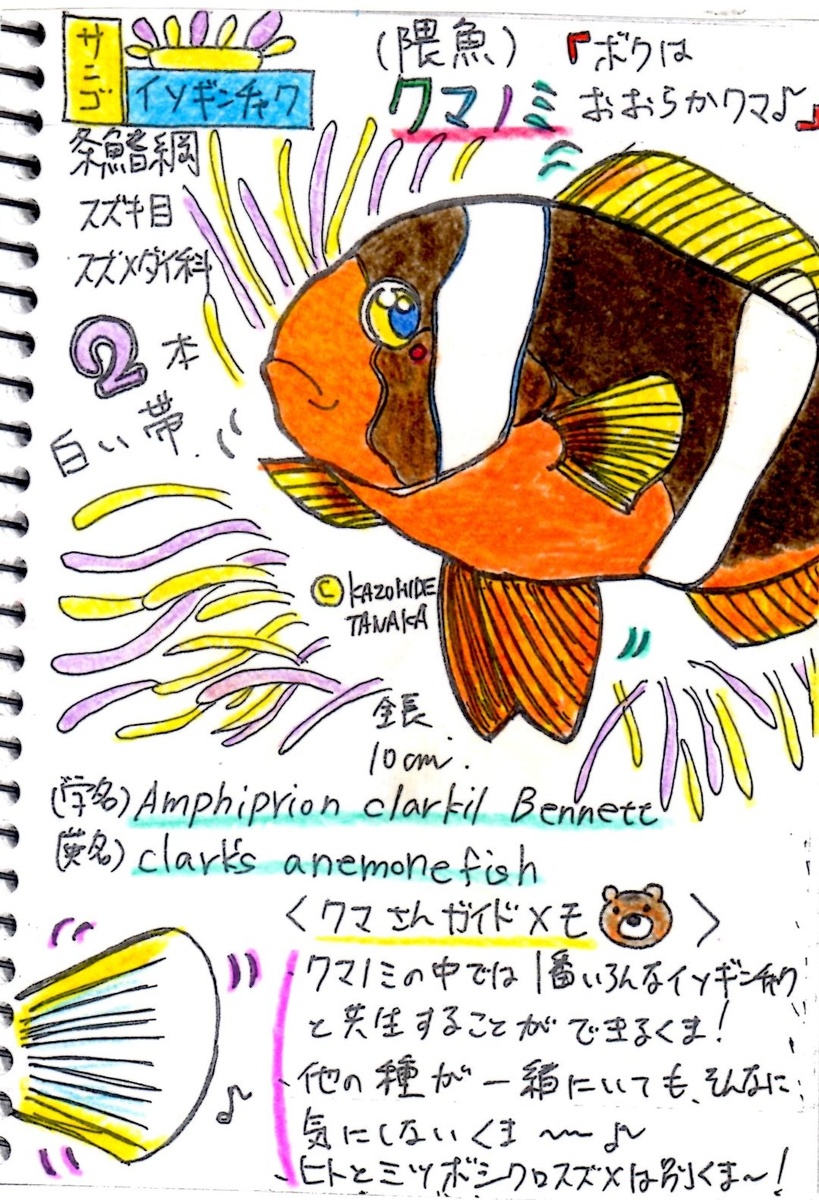 サンゴ
イソギンチャク
(隈魚)
クマノミ
『ボクは
おおらかクマ♪』
条鰭綱
スズキ目
スズメダイ科
2本
白い帯.
© KAZOHIDE
TANAKA
全長
10cm.
(学名) Amphiprion clarkil Bennett
(英名) clark's anemonefish
<クマさんガイドメモ>
・クマノミの中では1番いろんなイソギンチャク
と共生することができるくま!
・他の種が一緒にいても、そんなに
気にしないくま〜〜♪
・ヒトとミツボシクロスズメは別くま〜!